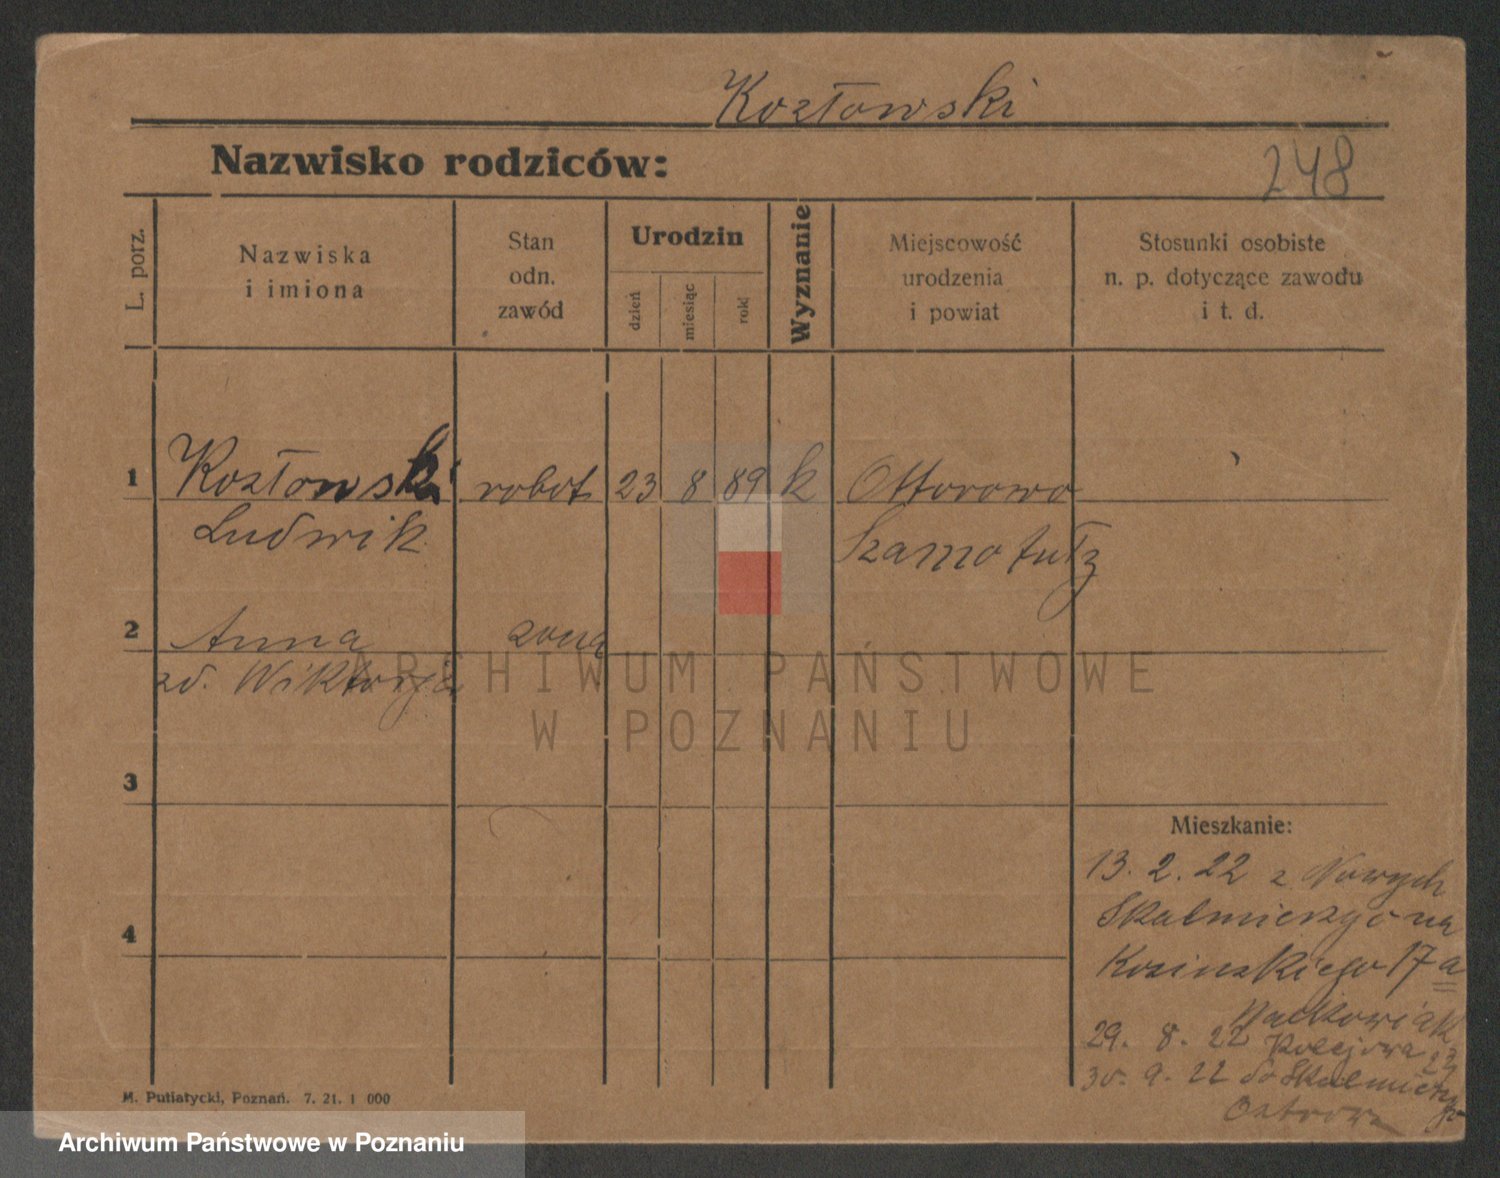 Kozłowski
Nazwisko rodziców:
248
L. porz.
Nazwiska
i imiona
Stan
odn.
zawód
Urodzin
dzień
miesiąc
rok
Wyznanie
Miejscowość
urodzenia
i powiat
Stosunki osobiste
n. p. dotyczące zawodu
i t. d.
1 Kozłowski robot. 23 8 89 k Ottorowo
Ludwik Szamotuły
2 Anna żona
zd. Wiktorja
3
4
Mieszkanie:
13. 2. 22 z Nowych
na
Kosinskiego 17 a
29. 8. 22 Kolejowa
30. 9. 22 do
Ostrowo
M. Putiatycki, Poznań. 7. 21. 1 000
ARCHIWUM PAŃSTWOWE
W POZNANIU
Archiwum Państwowe w Poznaniu